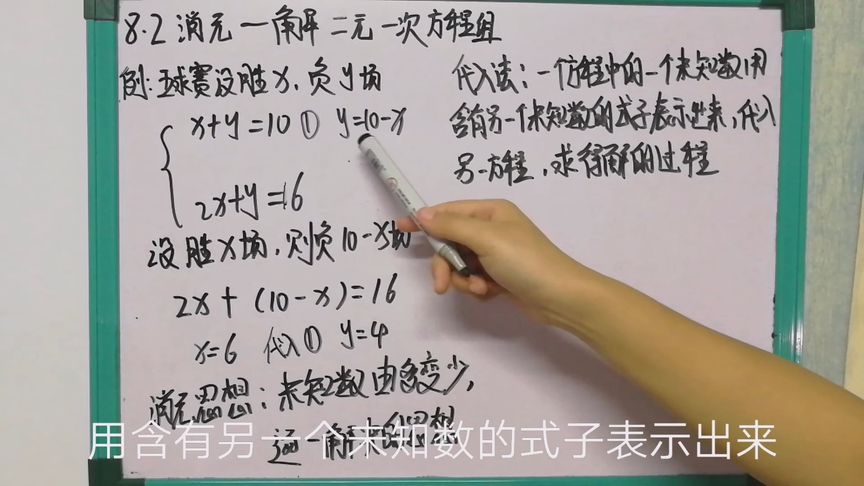 8.2 消元一解二元一次方程组
例:球赛设胜x,负y场
x+y=10① y=10-x
2x+y=16
设胜x场,则负10-x场
2x+(10-x)=16
x=6 代入① y=4
消元思想:未知数由多变少,
逐一解决的思想
代入法:一个方程中的一个未知数用
含有另一个未知数的式子表示出来,代入
另一方程,求得解的过程
用含有另一个未知数的式子表示出来